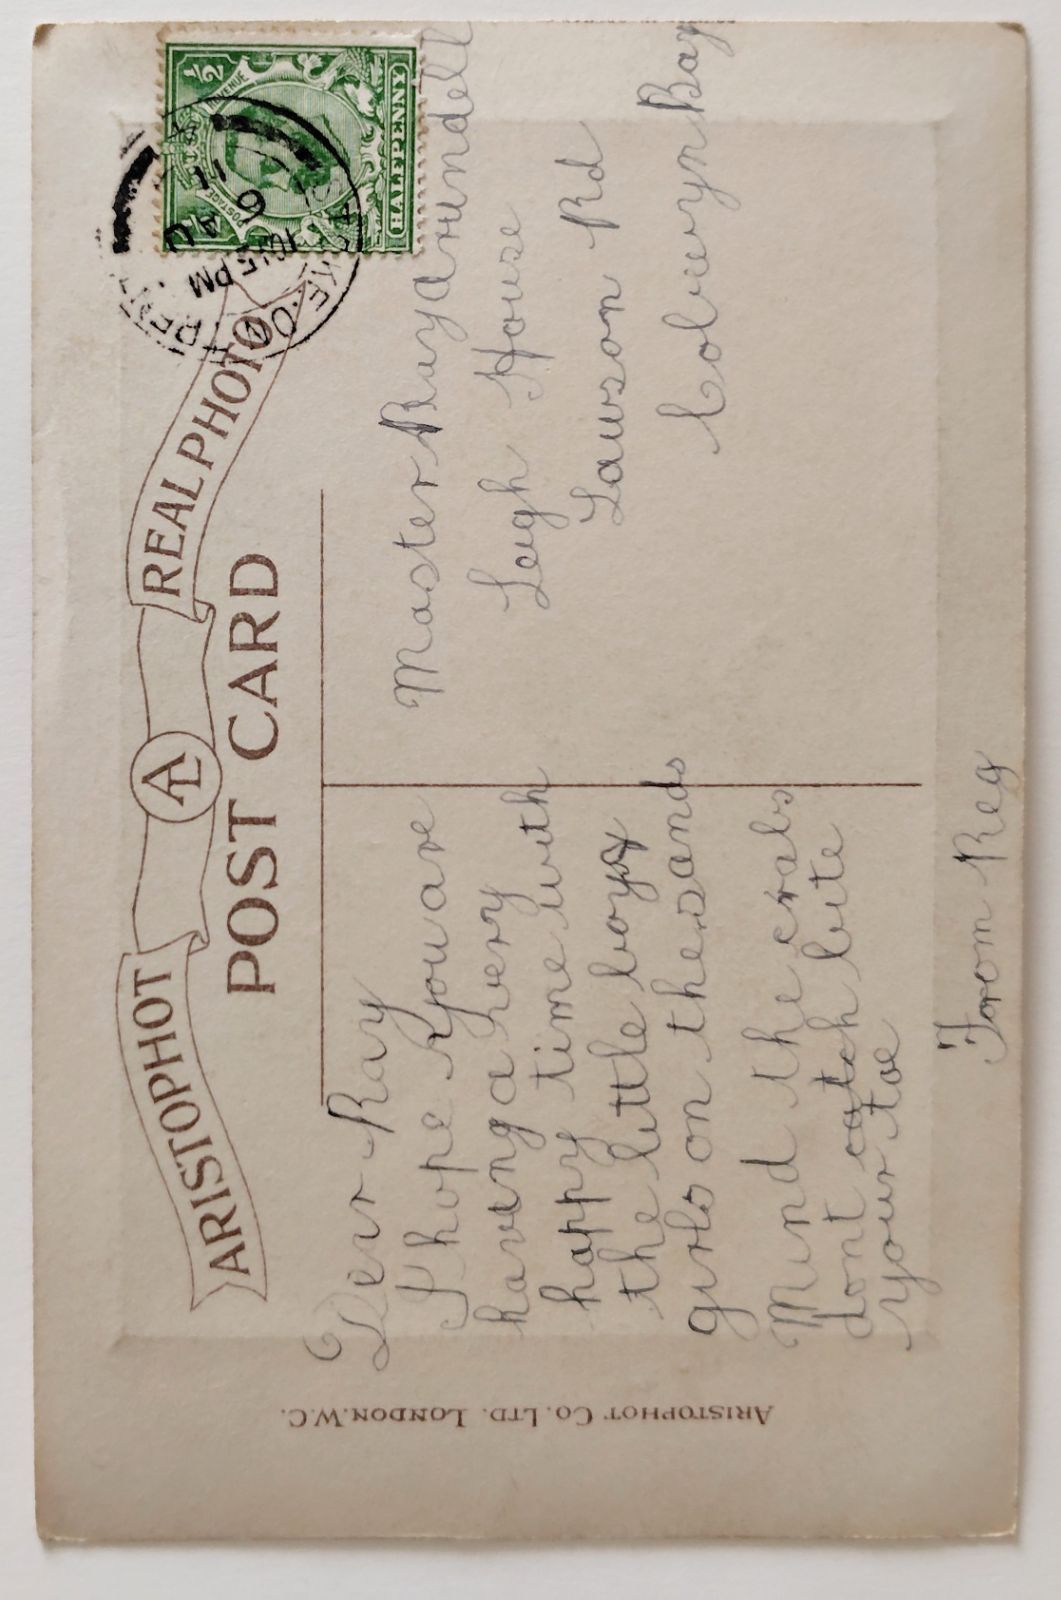 ARISTOPHOT AL REAL PHOTO
POST CARD
ARISTOPHOT CO. LTD. LONDON. W.C.
1/2
POSTAGE REVENUE
HALFPENNY
STOKE-O
10.15 PM
6 AU
11
Dear Ray
I hope you are
having a very
happy time with
the little boys
the little boys &
girls on the sands
Mind the crabs
dont catch bite
your toe
From Reg
Master Ray Arundell
Leigh House
Lawson Rd
Colwyn Bay